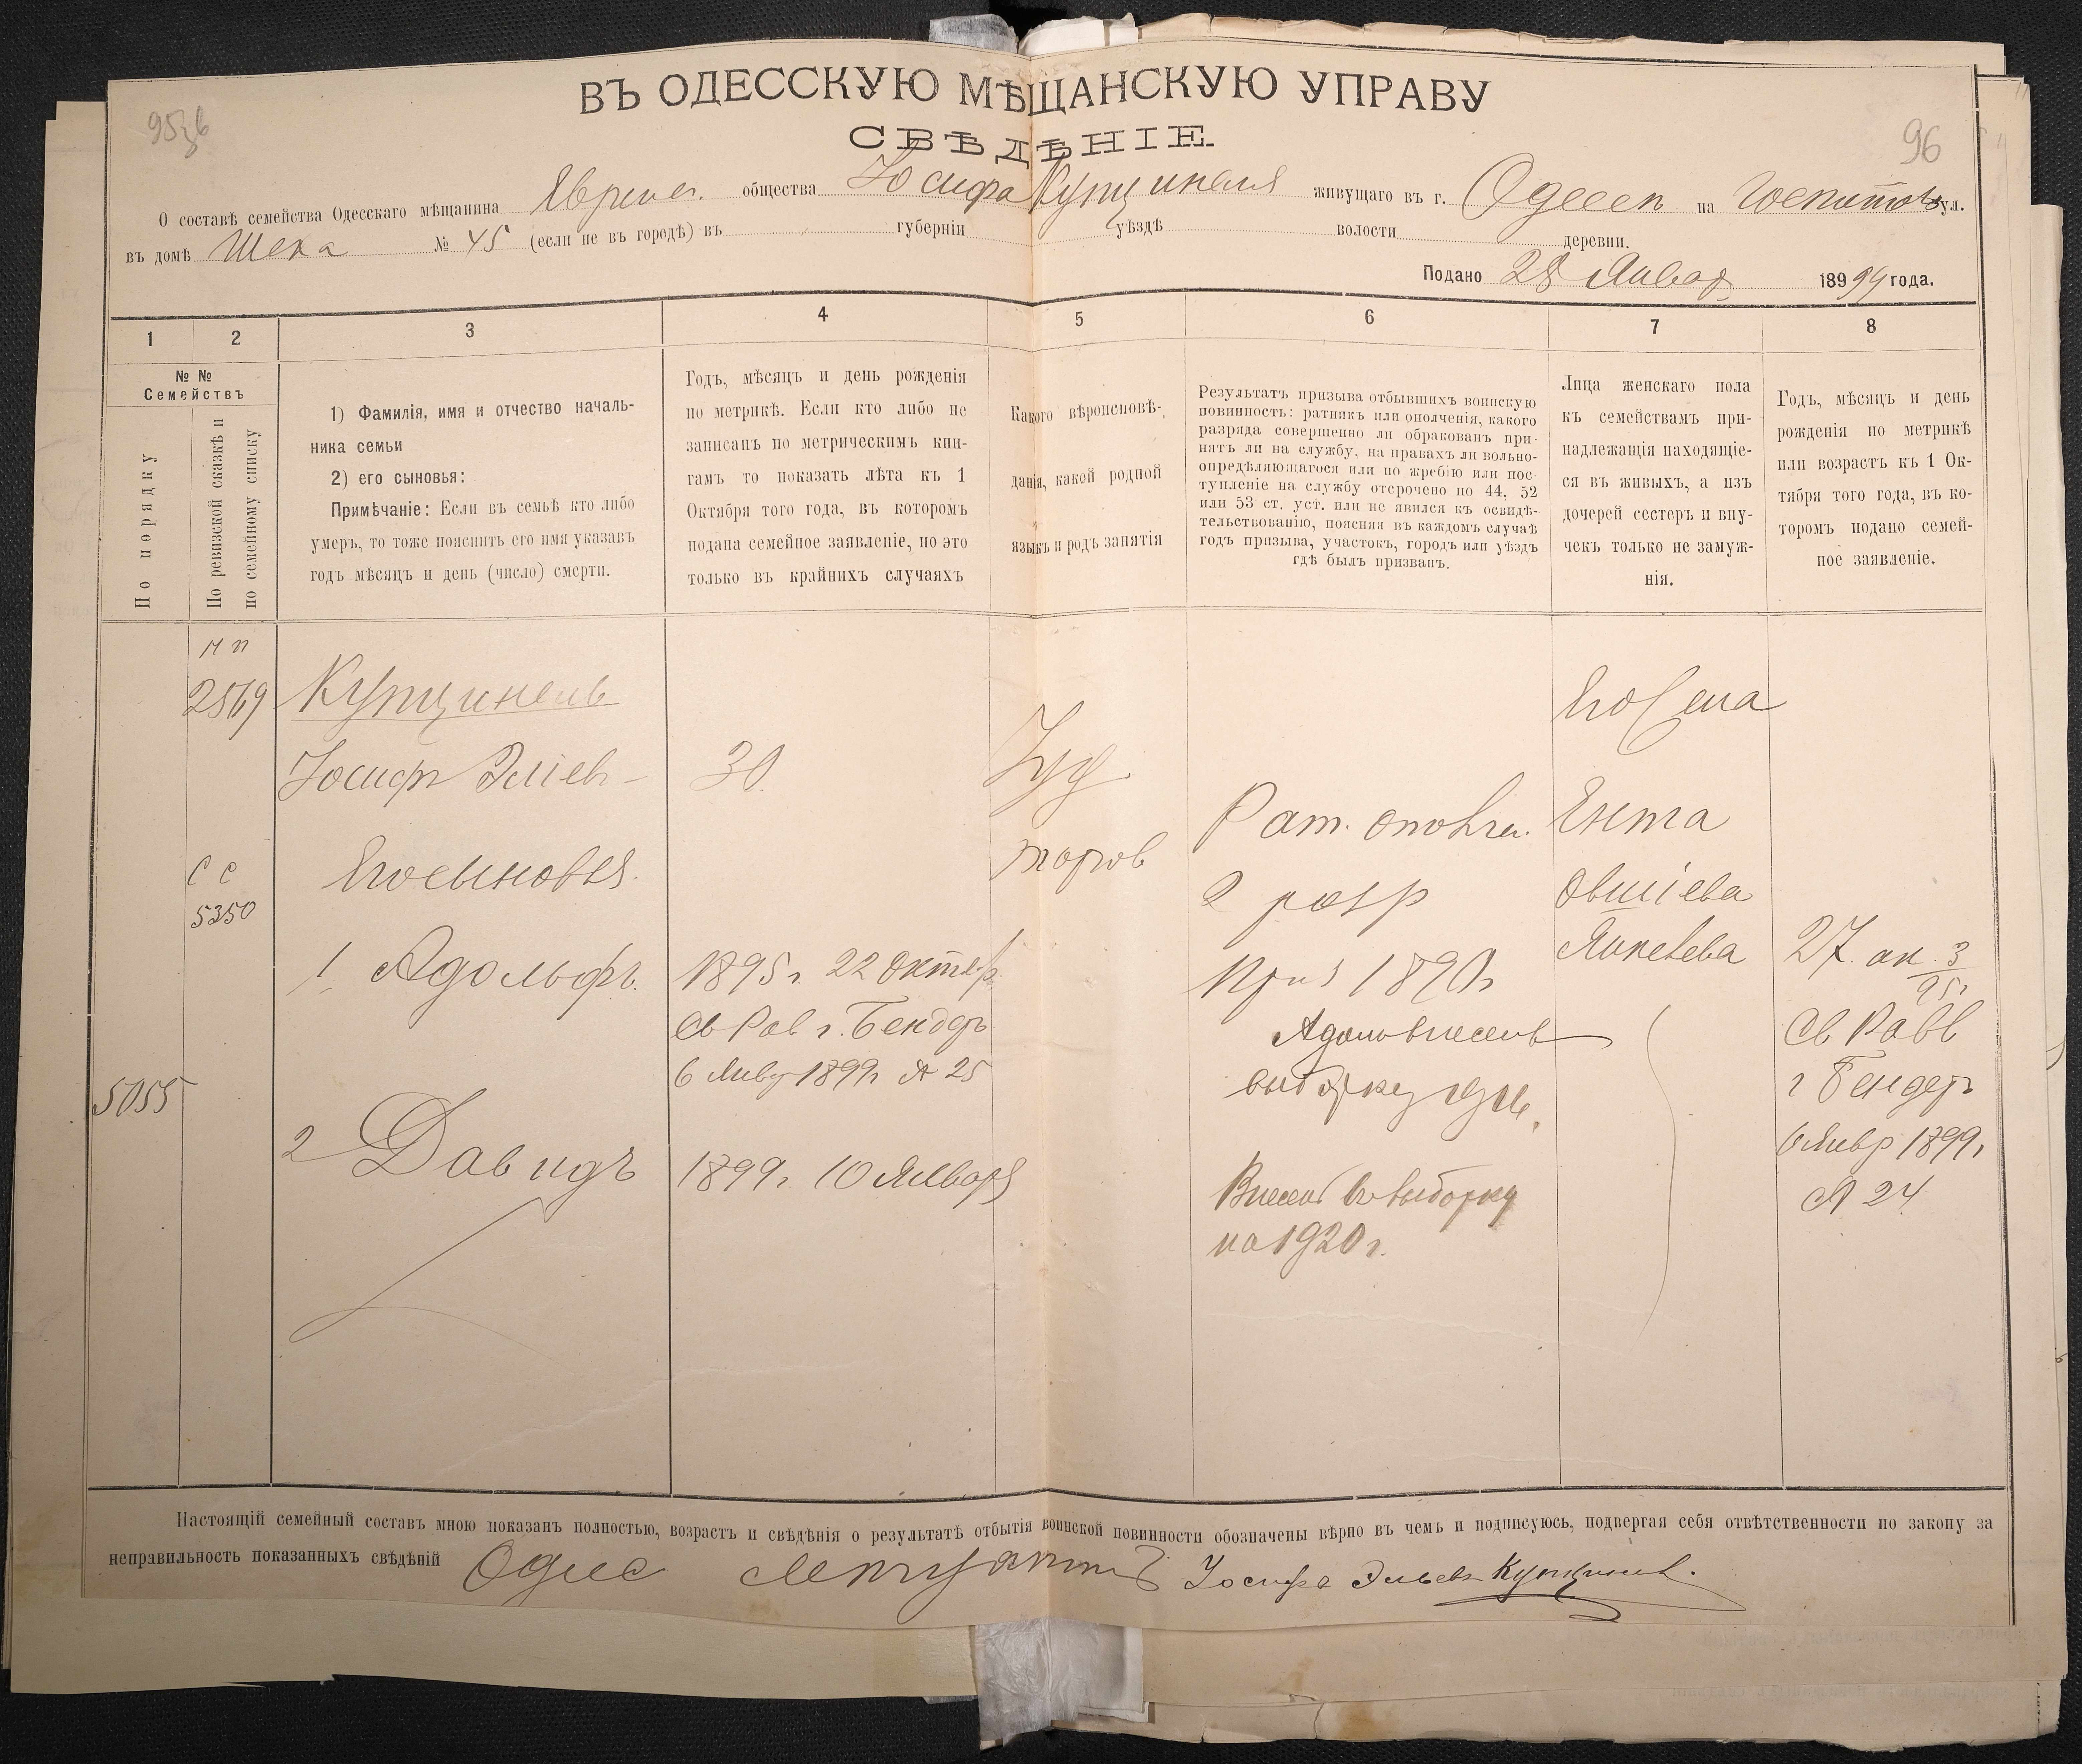 ВЪ ОДЕССКУЮ МѢЩАНСКУЮ УПРАВУ
СВѢДѢНІЕ.
96
О составѣ семейства Одесскаго мѣщанина Еврейск. общества Іосифа Купцинеля живущаго въ г. Одессѣ на Госпитов ул.
въ домѣ Шека № 45 (если не въ городѣ) въ губерніи уѣздѣ волости деревни.
Подано 28 Январ 18999 года.
1 2 3 4 5 6 7 8
№ №
Семействъ
По порядку
По ревизской сказкѣ и
по семейному списку
1) Фамилія, имя и отчество началь-
ника семьи
2) его сыновья:
Примѣчаніе: Если въ семьѣ кто либо
умеръ, то тоже пояснить его имя указавъ
годъ мѣсяцъ и день (число) смерти.
Годъ, мѣсяцъ и день рожденія
по метрикѣ. Если кто либо не
записанъ по метрическимъ кни-
гамъ то показать лѣта къ 1
Октября того года, въ которомъ
подана семейное заявленіе, но это
только въ крайнихъ случаяхъ
Какого вѣроисповѣ-
данія, какой родной
языкъ и родъ занятія
Результатъ призыва отбывшихъ воинскую
повинность: ратникъ или ополченія, какого
разряда совершенно ли обракованъ при-
нятъ ли на службу, на правахъ ли вольно-
опредѣляющагося или по жребію или пос-
тупленіе на службу отсрочено по 44, 52
или 53 ст. уст. или не явился къ освидѣ-
тельствованію, поясняя въ каждомъ случаѣ
годъ призыва, участокъ, городъ или уѣздъ
гдѣ былъ призванъ.
Лица женскаго пола
къ семействамъ при-
надлежащія находящіе-
ся въ живыхъ, а изъ
дочерей сестеръ и вну-
чекъ только не замуж-
нія.
Годъ, мѣсяцъ и день
рожденія по метрикѣ
или возрастъ къ 1 Ок-
тября того года, въ ко-
торомъ подано семей-
ное заявленіе.
м п
2569
Купцинель
Іосифъ Эліев
30
Іуд
торгов
Рат. ополч.
2 разр
приз 1890г
Его жена
Ента
Овшіева
Янкелева
27. ок.
Св Равв
г Бендеръ
6 Январ 1899г
№ 24
с с
5350
Его сыновья.
1 Адольфъ
1895г. 22 Октябр
Св Рав г. Бендеръ
6 Янв 1899г № 25
Адольф внесенъ
выборку
5055
2 Давидъ
1899г. 10 Января
Внесен въ выборку
на 1920г.
Настоящій семейный составъ мною показанъ полностью, возрастъ и свѣдѣнія о результатѣ отбытія воинской повинности обозначены вѣрно въ чемъ и подписуюсь, подвергая себя отвѣтственности по закону за
неправильность показанныхъ свѣдѣній Одес Мѣщанинъ Іосифъ Эльевъ Купцинель.